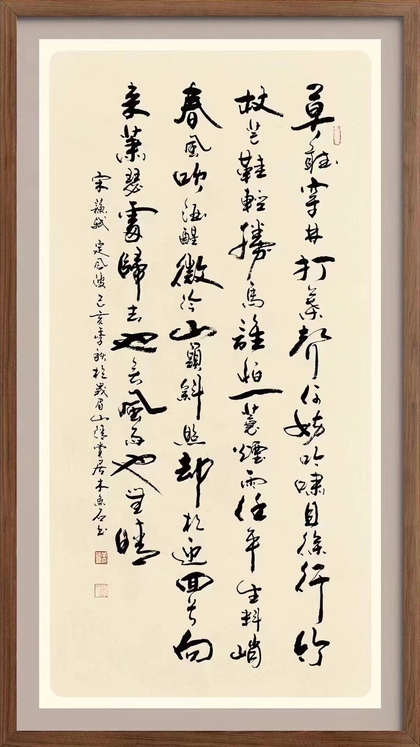 莫聽穿林打葉聲何妨吟嘯且徐行竹
杖芒鞋輕勝馬誰怕一蓑煙雨任平生料峭
春風吹酒醒微冷山頭斜照却相迎回首向
來蕭瑟處歸去也無風雨也無晴
宋蘇軾定風波己亥季秋於峨眉山居木魚石書